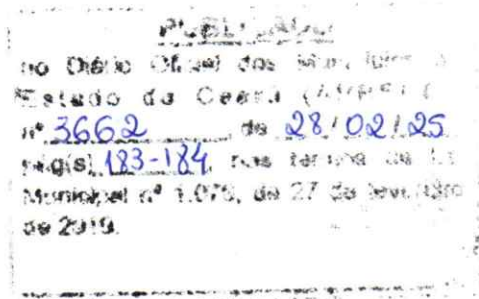 PUBLICADO
no Diário Oficial dos Municípios do
Estado do Ceará
nº 3662 de 28/02/25
pág(s) 183-184, nos termos da Lei
Municipal nº 1.076, de 27 de fevereiro
de 2019.